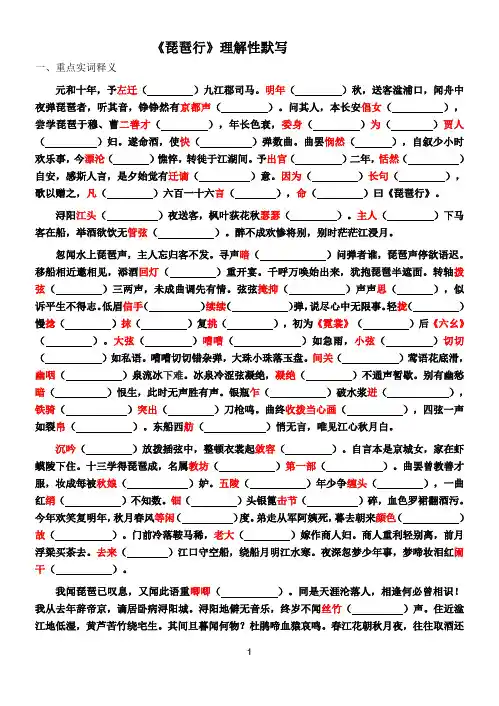 《琵琶行》理解性默写
一、重点实词释义
元和十年，予左迁（________）九江郡司马。明年（________）秋，送客湓浦口，闻舟中
夜弹琵琶者，听其音，铮铮然有京都声（________）。问其人，本长安倡女（________），
尝学琵琶于穆、曹二善才（________），年长色衰，委身（________）为（________）贾人
（________）妇。遂命酒，使快（________）弹数曲。曲罢悯然（________），自叙少小时
欢乐事，今漂沦（________）憔悴，转徙于江湖间。予出官（________）二年，恬然（________）
自安，感斯人言，是夕始觉有迁谪（________）意。因为（________）长句（________），
歌以赠之，凡（________）六百一十六言（________），命（________）曰《琵琶行》。
浔阳江头（________）夜送客，枫叶荻花秋瑟瑟（________）。主人（________）下马
客在船，举酒欲饮无管弦（________）。醉不成欢惨将别，别时茫茫江浸月。
忽闻水上琵琶声，主人忘归客不发。寻声暗（________）问弹者谁，琵琶声停欲语迟。
移船相近邀相见，添酒回灯（________）重开宴。千呼万唤始出来，犹抱琵琶半遮面。转轴拨
弦（________）三两声，未成曲调先有情。弦弦掩抑（________）声声思（________），似
诉平生不得志。低眉信手（________）续续（________）弹，说尽心中无限事。轻拢（________）
慢捻（________）抹（________）复挑（________），初为《霓裳》（________）后《六幺》
（________）。大弦（________）嘈嘈（________）如急雨，小弦（________）切切
（________）如私语。嘈嘈切切错杂弹，大珠小珠落玉盘。间关（________）莺语花底滑，
幽咽（________）泉流冰下难。冰泉冷涩弦凝绝，凝绝（________）不通声暂歇。别有幽愁
暗（________）恨生，此时无声胜有声。银瓶乍（________）破水浆迸（________），
铁骑（________）突出（________）刀枪鸣。曲终收拨当心画（________），四弦一声
如裂帛（________）。东船西舫（________）悄无言，唯见江心秋月白。
沉吟（________）放拨插弦中，整顿衣裳起敛容（________）。自言本是京城女，家在虾
蟆陵下住。十三学得琵琶成，名属教坊（________）第一部（________）。曲罢曾教善才
服，妆成每被秋娘（________）妒。五陵（________）年少争缠头（________），一曲
红绡（________）不知数。钿（________）头银篦击节（________）碎，血色罗裙翻酒污。
今年欢笑复明年，秋月春风等闲（________）度。弟走从军阿姨死，暮去朝来颜色（________）
故（________）。门前冷落鞍马稀，老大（________）嫁作商人妇。商人重利轻别离，前月
浮梁买茶去。去来（________）江口守空船，绕船月明江水寒。夜深忽梦少年事，梦啼妆泪红阑
干（________）。
我闻琵琶已叹息，又闻此语重唧唧（________）。同是天涯沦落人，相逢何必曾相识！
我从去年辞帝京，谪居卧病浔阳城。浔阳地僻无音乐，终岁不闻丝竹（________）声。住近湓
江地低湿，黄芦苦竹绕宅生。其间旦暮闻何物？杜鹃啼血猿哀鸣。春江花朝秋月夜，往往取酒还
1